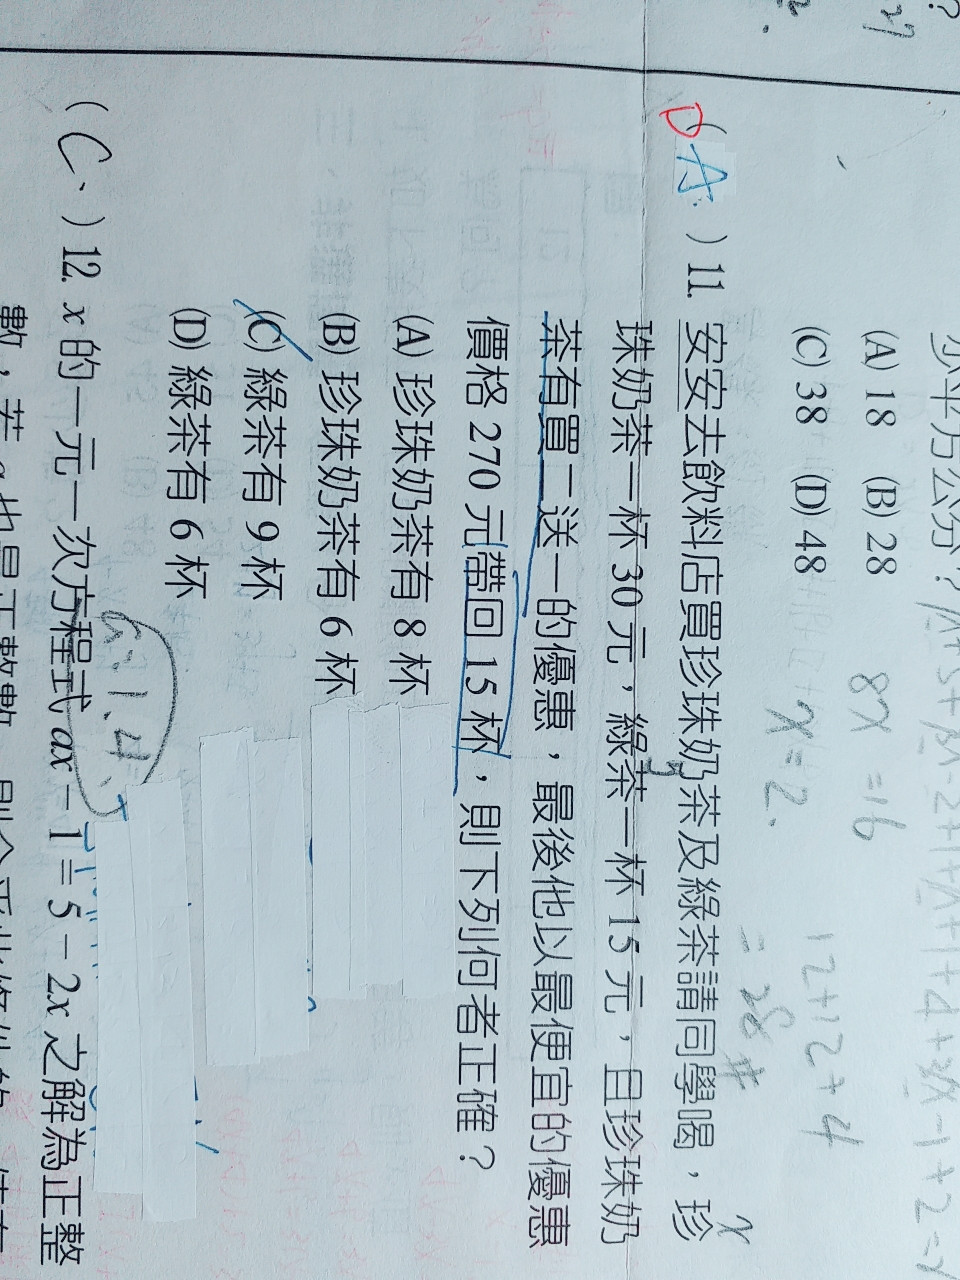 (A) 18 (B) 28
(C) 38 (D) 48
8x = 16
x = 2.
12+12+4
= 28 #
(A.) 11. 安安去飲料店買珍珠奶茶及綠茶請同學喝，珍
珠奶茶一杯 30 元，綠茶一杯 15 元，且珍珠奶
茶有買二送一的優惠，最後他以最便宜的優惠
價格 270 元帶回 15 杯，則下列何者正確？
(A) 珍珠奶茶有 8 杯
(B) 珍珠奶茶有 6 杯
(C) 綠茶有 9 杯
(D) 綠茶有 6 杯
(C、) 12. x 的一元一次方程式 ax − 1 = 5 − 2x 之解為正整